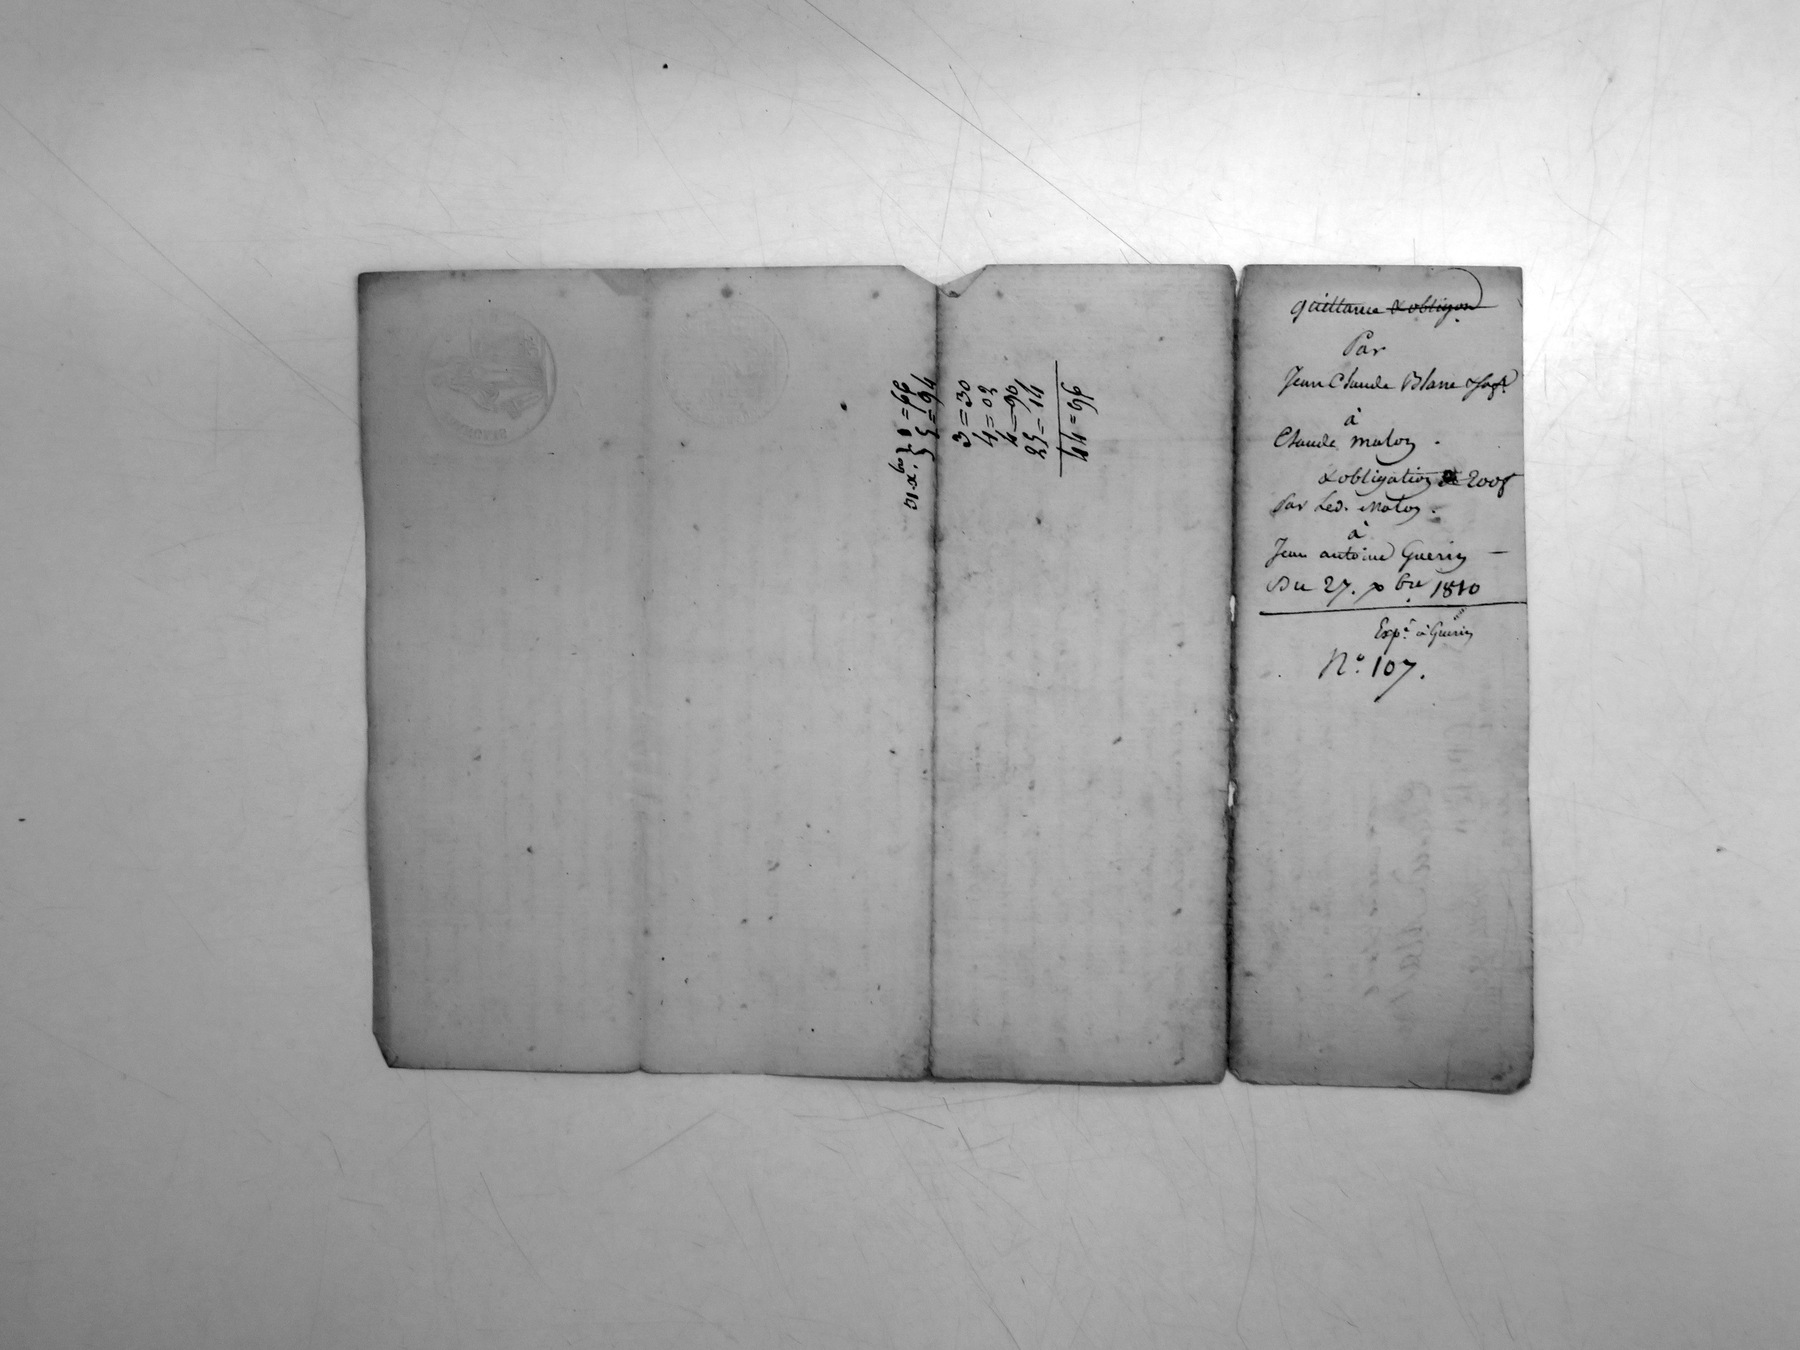 quittance & obligon
Par
Jean Claude Blanc
à
Claude maloz .
& obligation de 200f
Par Led. Maloz .
à
Jean antoine Guerin —
Du 27. xbre 1810
Expé. à Guerin
N° 107.
3 = 30
4 = 03
4 = 90
25 = 14
44 = 96